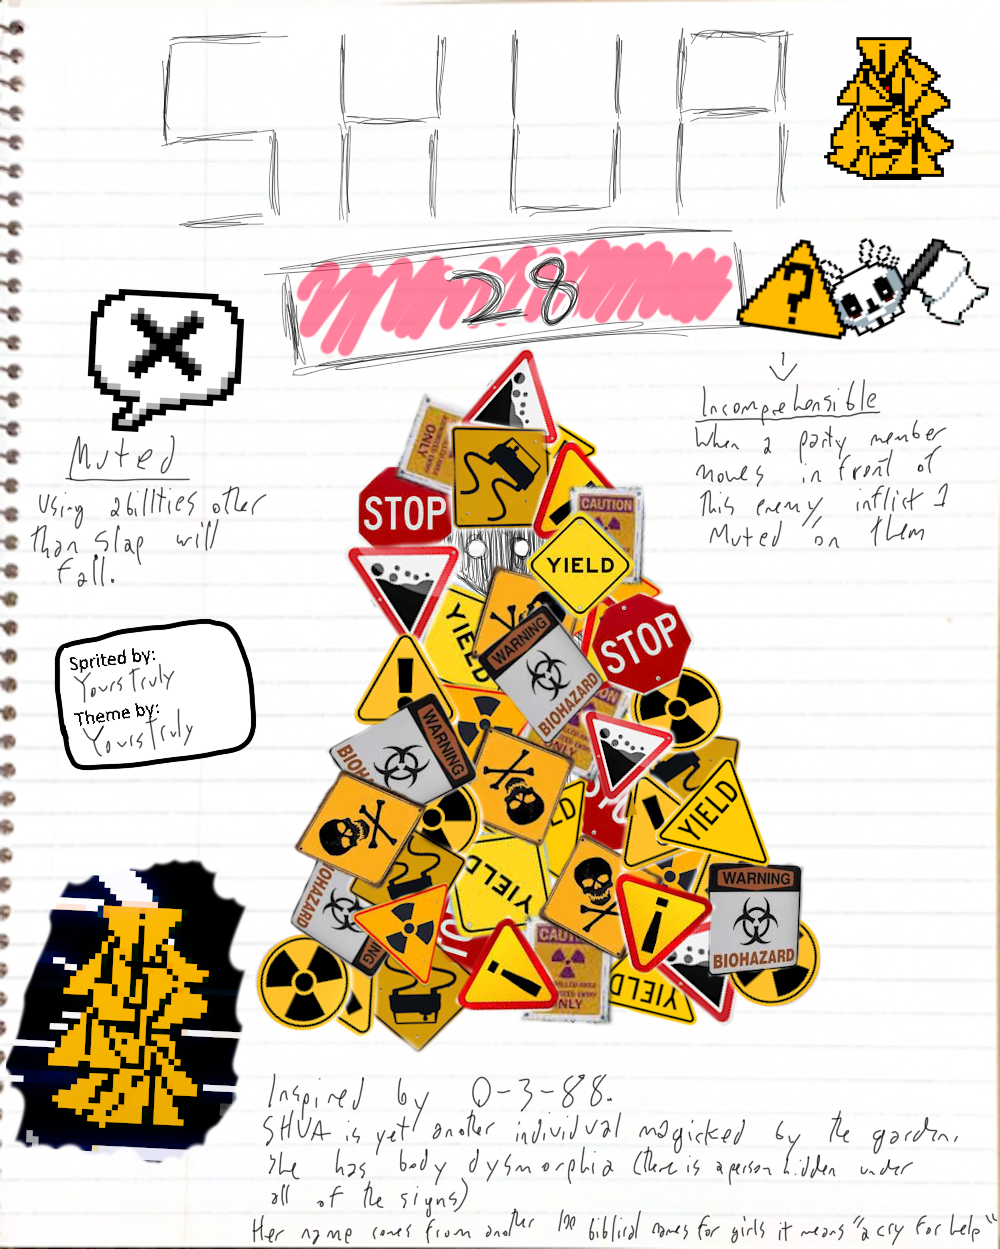 SHUA
28
?
Muted
Using abillities other
than Slap will
fail.
Incomprehensible
When a party member
moves in front of
this enemy, inflict 1
Muted on them
Sprited by:
Yours Truly
Theme by:
Yours Truly
CONTROLLED AREA
AUTHORIZED ENTRY
ONLY
STOP
CAUTION
YIELD
YIELD
STOP
WARNING
BIOHAZARD
!
WARNING
BIOHA
ONLY
YIELD
LD
YIELD
BIOHAZARD
WARNING
!
WARNING
BIOHAZARD
!
CAUTION
ONLY
YIELD
Inspired by 0-3-88.
SHUA is yet another individual magicked by the garden.
She has body dysmorphia (there is a person hidden under
all of the signs)
Her name comes from another 100 biblical names for girls it means "a cry for help"